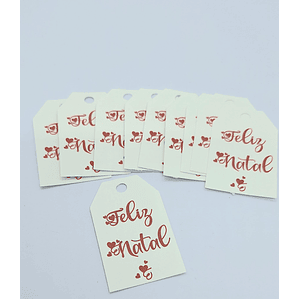 Feliz
Natal
Feliz
Natal